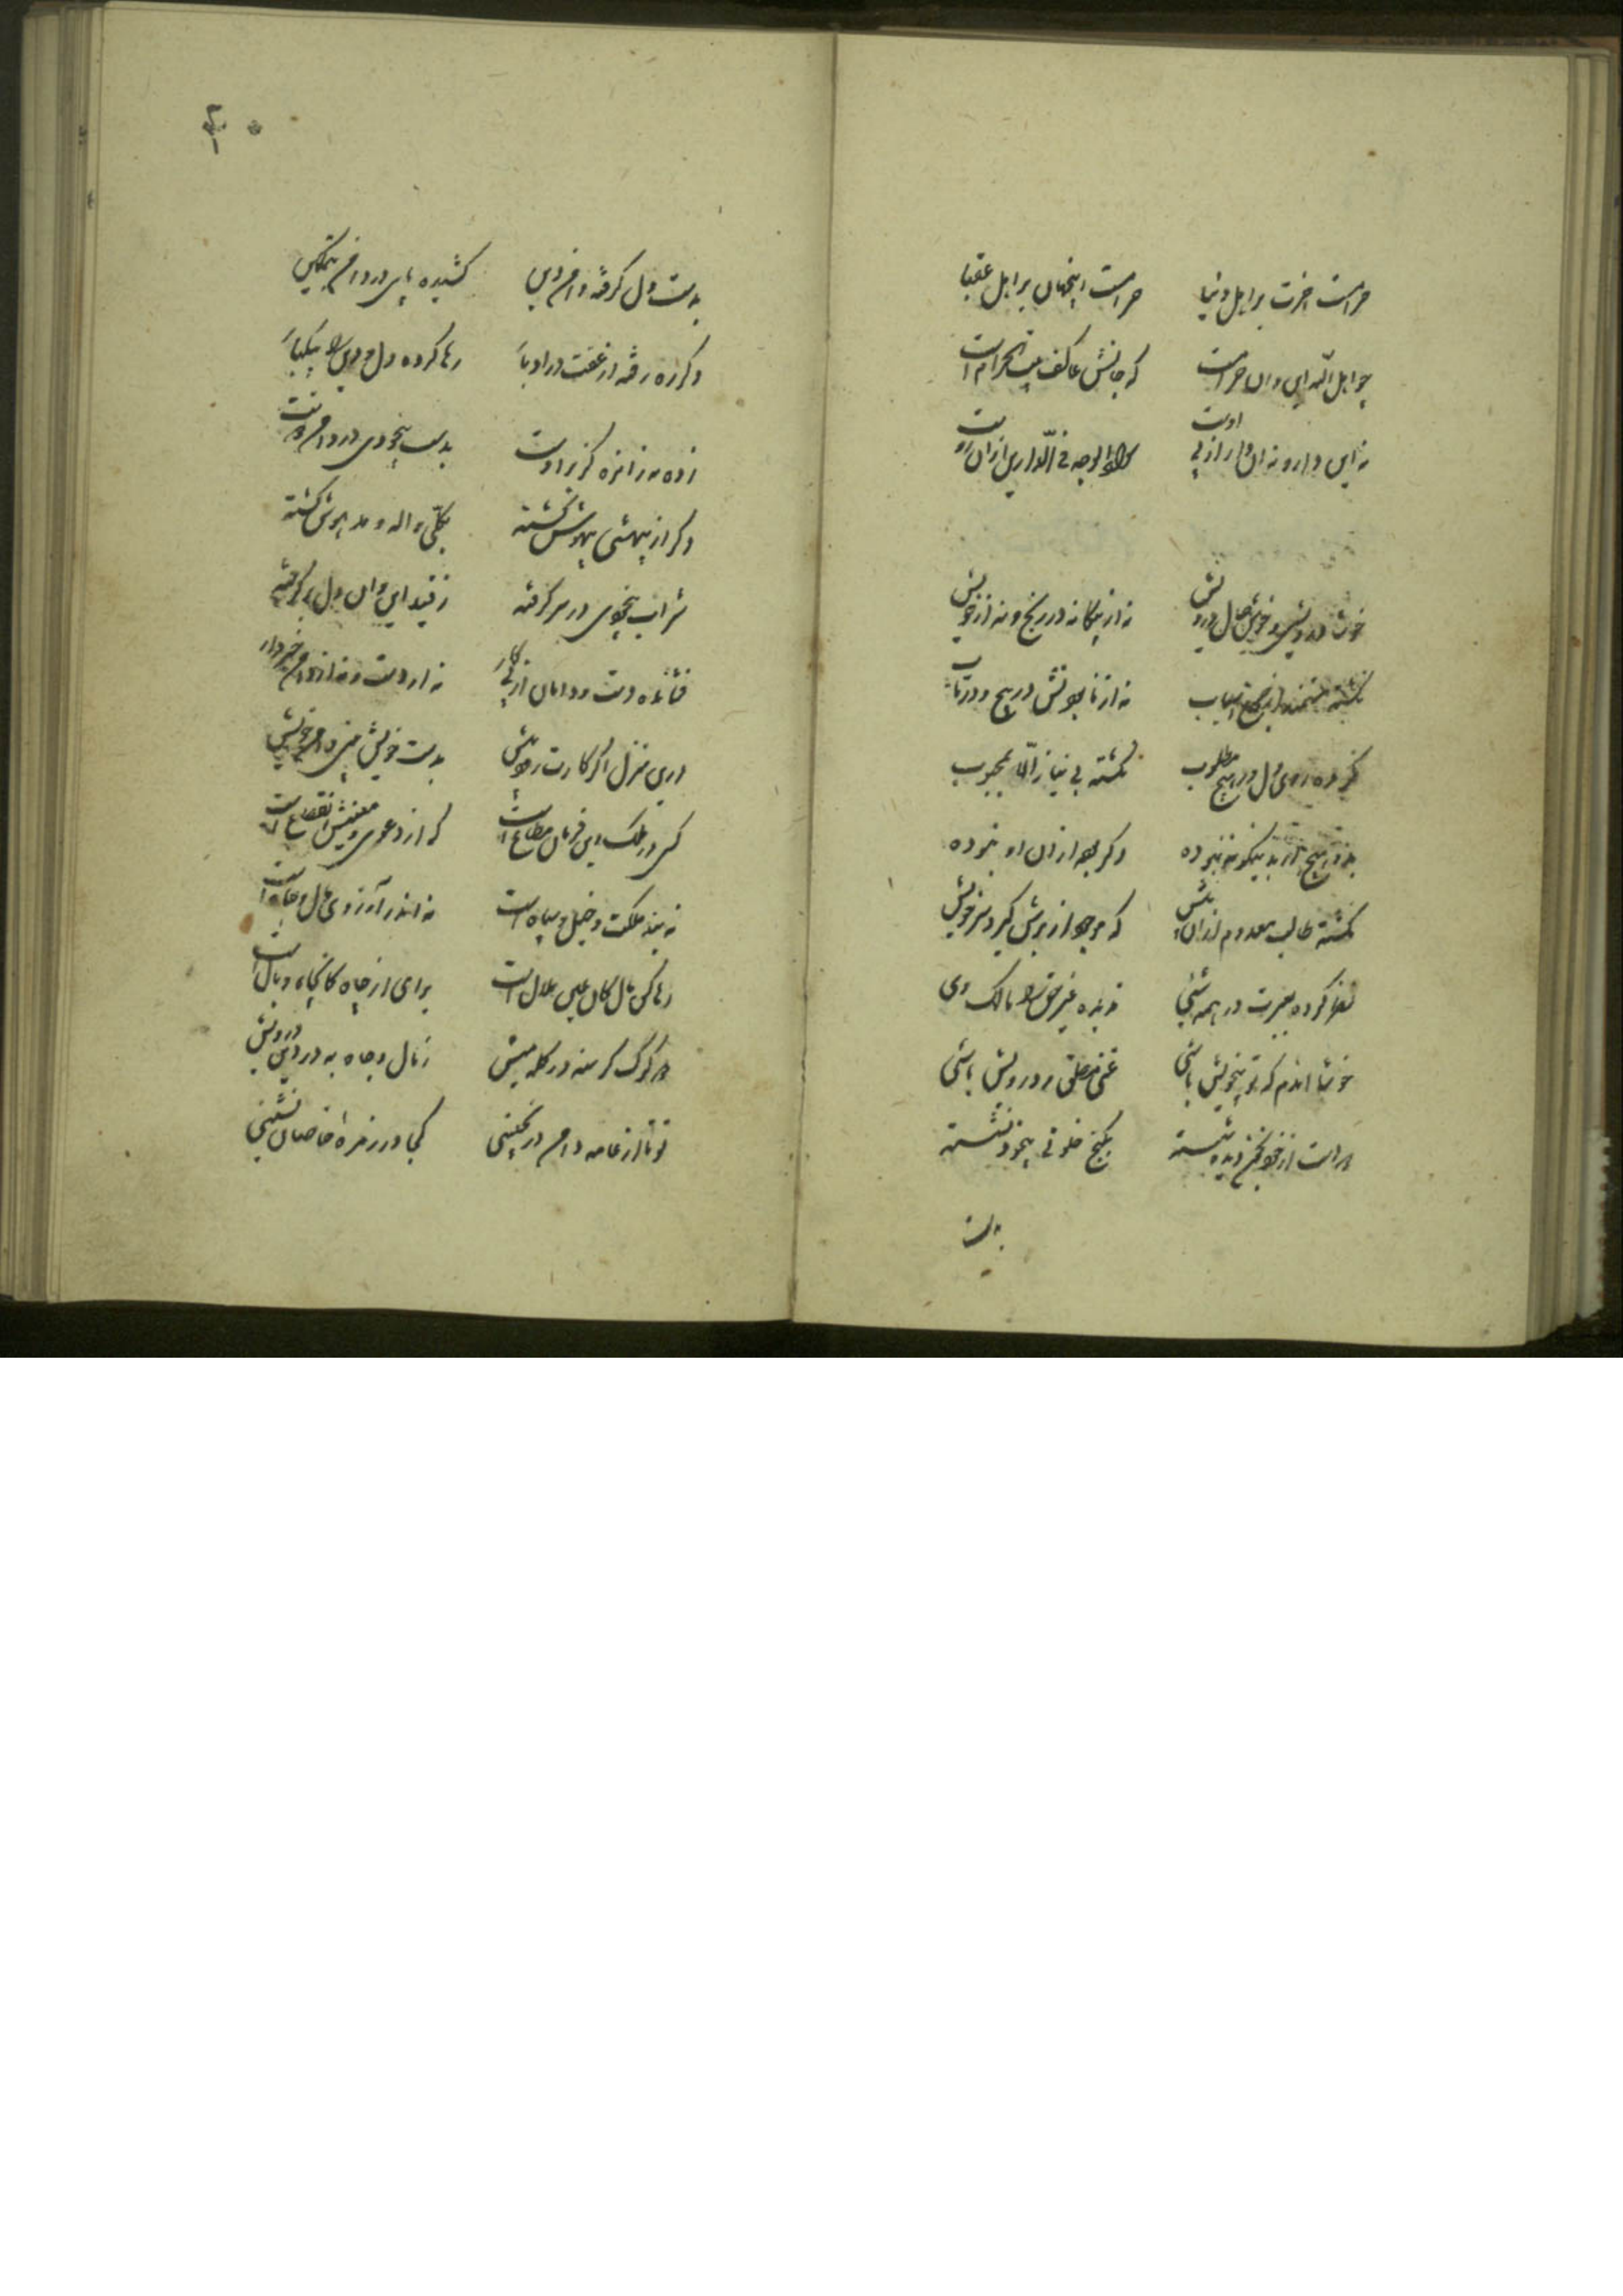 حرامست اخرت بر اهل دنیا حرامست اینجهان بر اهل عقبا
چو اهل الله این و ان حرامست که جانش عاکف بیت الحرام است
نه این دارد نه ان دارد از پی اوست سواد الوجه فی الدارین ازان روست
خوشا درویشی و خوش حال درویش نه از بیکانه در رنج و نه از خویش
نکشته مستمند از جمع اسباب نه از نابودنش در پیچ و در تاب
نکرده روی دل در هیچ مطلوب نکشته بی نیاز الا بمحبوب
بد و هیچ از بد نیکو نبوده دکر بود از ان او نبوده
نکشته طالب معدوم زان بیش که موجود از برش کیرد سر خویش
نظر کرده بعبرت در همه شیٔ ندیده غیر حق را مالک وی
خوشا اندم که تو بیخویش باشی غنی مطلق و درویش باشی
براست از خود بخیر دیده بسته بکنج خلوتی بیخود نشسته
بدست
۴۰
بدست دل کرفته دامن دین کشیده پای در دامن بتمکین
دکر ره رفته از غفلت در ادبار رها کرده دل و دین را بیکبار
زده سر زانره کز بر اوست بدست بیخودی در دامن دوست
دکر از بیهشی بیهوش کشته بکلی واله و مدهوش کشته
شراب بیخودی در سر کرفته ز قید این و ان دل بر کرفته
فشانده دست و دامان از پی کار نه از دست و نه از دامن خبردار
درین منزل اکر کارت رهو بیش بدست خویش بینی دامن خویش
کسی در ملک این فرمان مطاع است که از دعوی و معنیش انقطاع است
نه بیند ملکت و خیل و سپاه است نه اندر آرزوی مال و جاه است
رها کن مال کان عین ملال است برای از چاه کانجاه وبال است
دو کرک کرسنه در کله میش ز مال و جاه به در دین درویش
تو تا از عامه دامن در نچینی کجا در زمرهٔ خاصان نشینی